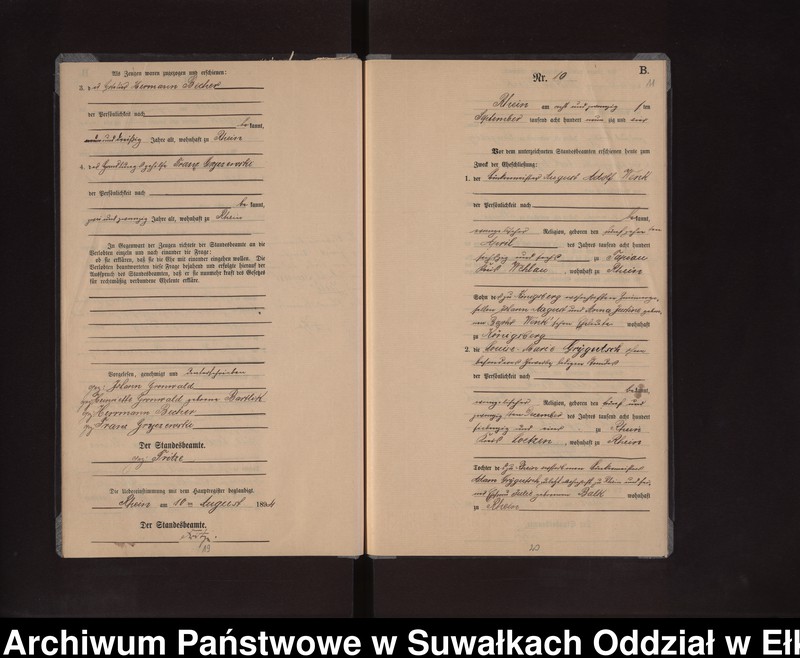 Als Zeugen waren zugezogen und erschienen:
3. Hermann Becher
der Persönlichkeit nach
be kannt,
und dreißig Jahre alt, wohnhaft zu Rhein
4. Franz Gryzewski
der Persönlichkeit nach
be kannt,
zwei und zwanzig Jahre alt, wohnhaft zu Rhein
In Gegenwart der Zeugen richtete der Standesbeamte an die
Verlobten einzeln und nach einander die Frage:
ob sie erklären, daß sie die Ehe mit einander eingehen wollen. Die
Verlobten beantworteten diese Frage bejahend und erfolgte hierauf der
Ausspruch des Standesbeamten, daß er sie nunmehr kraft des Gesetzes
für rechtmäßig verbundene Eheleute erkläre.
Vorgelesen, genehmigt und unterschrieben
gez. Johann Grunwald
gez. Henriette Grunwald geborne Bartlik
gez. Herrmann Becher
gez. Franz Gryzewski
Der Standesbeamte.
gez. Fritze
Die Uebereinstimmung mit dem Hauptregister beglaubigt.
Rhein am 18 ten August 1894
Der Standesbeamte.
Fritze.
19
B.
Nr. 10
11
Rhein am acht und zwanzig sten
September tausend acht hundert neun zig und vier
Vor dem unterzeichneten Standesbeamten erschienen heute zum
Zweck der Eheschließung:
1. der August Adolf Wenk
der Persönlichkeit nach
be kannt,
evangelischer Religion, geboren den ten
April des Jahres tausend acht hundert
sechszig und sechs zu Tapiau
Kreis Wehlau, wohnhaft zu Rhein
Sohn de zu Königsberg
Johann August und Anna Justine
Wenk'schen Eheleute wohnhaft
zu Königsberg
2. die Louise Marie Grÿgutsch ohne
besonderes Gewerbe ledigen Standes
der Persönlichkeit nach
bekannt,
evangelischer Religion, geboren den fünf und
zwanzig sten Dezember des Jahres tausend acht hundert
siebenzig und eins zu Rhein
Kreis Loetzen, wohnhaft zu Rhein
Tochter de
Adam Grÿgutsch zu Rhein
gebornen Balk wohnhaft
zu Rhein
20
Archiwum Państwowe w Suwałkach Oddział w Ełk